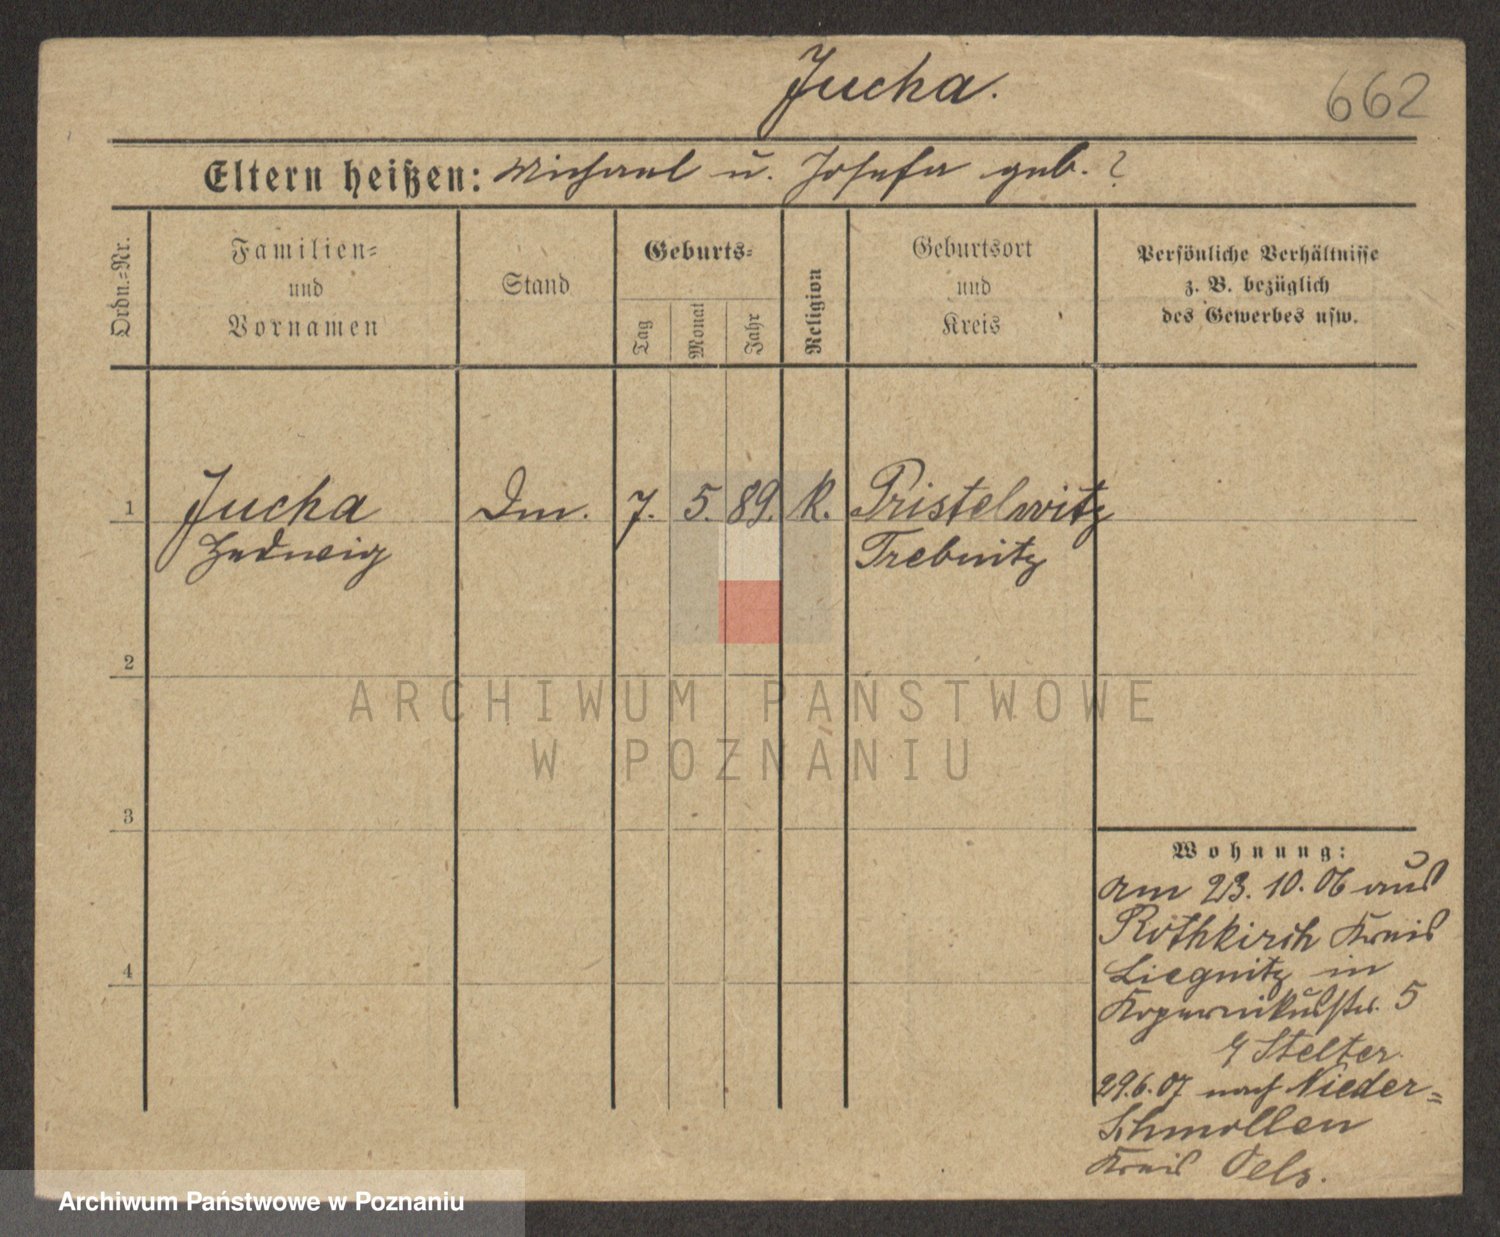 Jucha.
662
Eltern heißen: Michael u. Josefa geb. ?
Ordn.=Nr.
Familien=
und
Vornamen
Stand
Geburts=
Tag
Monat
Jahr
Religion
Geburtsort
und
Kreis
Persönliche Verhältnisse
z. B. bezüglich
des Gewerbes usw.
1 Jucha Dm. 7. 5. 89. K. Pristelwitz
Hedwig Trebnitz
2
3
4
Wohnung:
am 23. 10. 06 aus
Rothkirch Kreis
Liegnitz in
Kopernikusstr. 5
Stelter
29.6.07 nach Nieder=
Schmollen
Kreis Oels.
ARCHIWUM PAŃSTWOWE
W POZNANIU
Archiwum Państwowe w Poznaniu